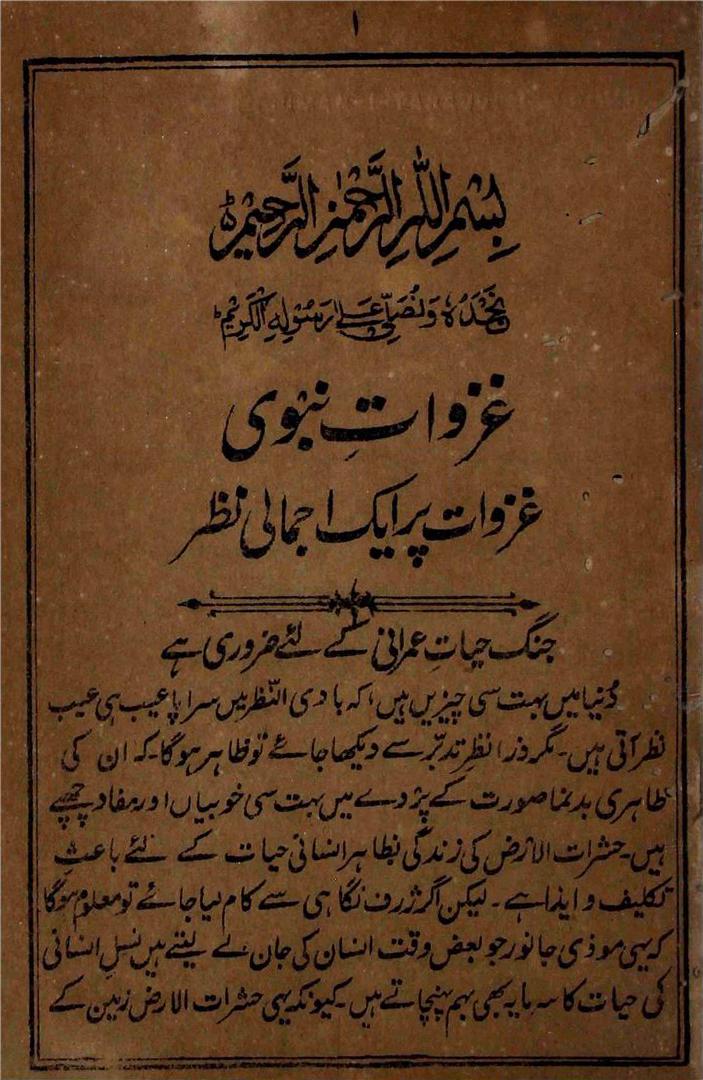 ۱
بِسْمِ اللّٰهِ الرَّحْمٰنِ الرَّحِيْمِ ط
نَحْمَدُهٗ وَنُصَلِّیْ عَلٰی رَسُوْلِهِ الْکَرِیْمِ ط
غزواتِ نبوی
غزوات پر ایک اجمالی نظر
جنگ حیاتِ عمرانی کے لئے ضروری ہے
دُنیا میں بہت سی چیزیں ہیں، کہ بادی النّظر میں سراپا عیب ہی عیب
نظر آتی ہیں۔ مگر ذرا نظرِ تدبّر سے دیکھا جائے تو ظاہر ہو گا۔ کہ ان کی
ظاہری بدنما صورت کے پردے میں بہت سی خوبیاں اور مفاد چھپے
ہیں۔ حشرات الارض کی زندگی بظاہر انسانی حیات کے لئے باعثِ
تکلیف و ایذا ہے۔ لیکن اگر ژرف نگاہی سے کام لیا جائے تو معلوم ہوگا
کہ یہی موذی جانور جو بعض وقت انسان کی جان لے لیتے ہیں نسلِ انسانی
کی حیات کا سرمایہ بھی بہم پہنچاتے ہیں۔ کیونکہ یہی حشرات الارض زمین کے